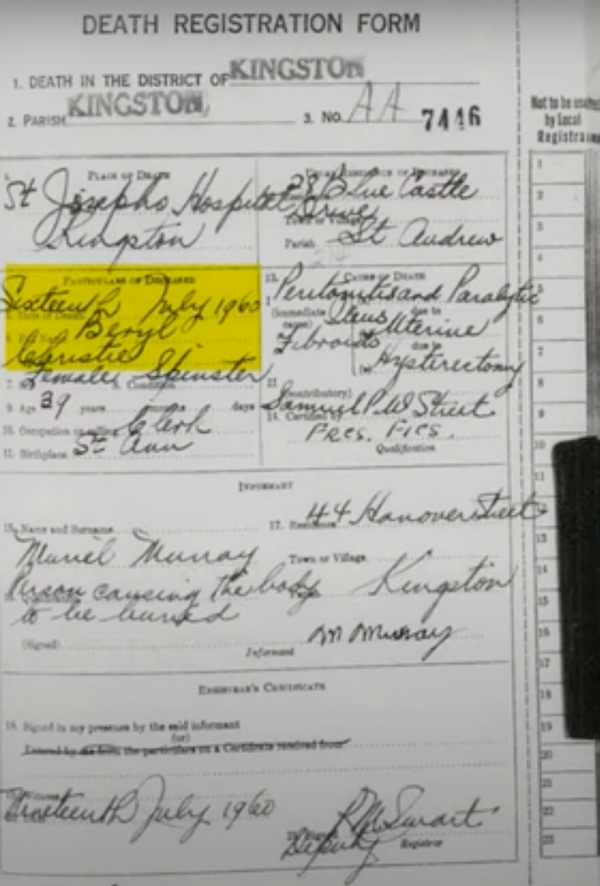 DEATH REGISTRATION FORM
1. DEATH IN THE DISTRICT OF KINGSTON
2. PARISH KINGSTON, 3. No. AA 7446
Not to be
by Local
Registra
PLACE OF DEATH
St Josephs Hospital
Kingston
28 Blue Castle
Drive
Town or Village
Parish St Andrew
PARTICULARS OF DECEASED
Sixteenth July 1960
Beryl
Christie
Female, Spinster
9. Age 39 years months days
10. Occupation or calling Clerk
11. Birthplace St Ann
13. CAUSE OF DEATH
Peritonitis and Paralytic
(immediate cause) Ileus due to
Uterine
Fibroids due to
Hysterectomy
II
(contributory)
Samuel P.W. Street
14. Certified by
FRCS. FICS.
Qualification
INFORMANT
15. Name and Surname
Muriel Murray
Person causing the body
to be buried
17. Residence 44 Hanover Street
Town or Village
Kingston
(Signed) M Murray
Informant
REGISTRAR'S CERTIFICATE
18. Signed in my presence by the said informant
(or)
Entered by me from the particulars on a Certificate received from
Nineteenth July 1960
Deputy Registrar
1
2
3
4
5
6
7
8
9
10
11
12
13
14
15
16
17
18
19
20
21
22
23